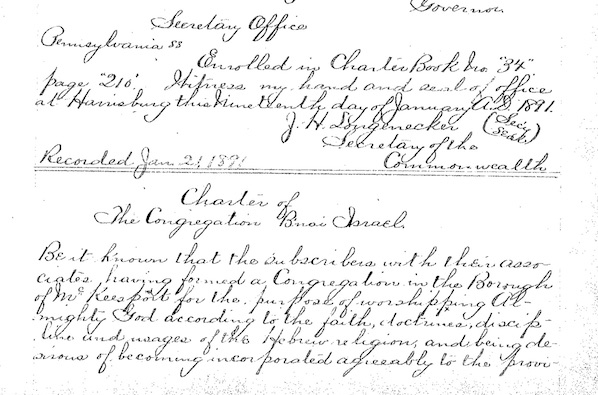 Governor
Secretary Office
Pennsylvania SS
Enrolled in Charter Book No. "34"
page "216". Witness my hand and seal of office
at Harrisburg this Nineteenth day of January A.D. 1891.
J. H. Longenecker (Secy Seal)
Secretary of the
Commonwealth
Recorded Jan. 21 1891
Charter of
The Congregation B'nai Israel.
Be it known that the subscribers with their asso-
ciates, having formed a Congregation in the Borough
of McKeesport for the purpose of worshipping Al-
mighty God according to the faith, doctrines, discip-
line and usages of the Hebrew religion, and being de-
sirous of becoming incorporated agreeably to the provi-